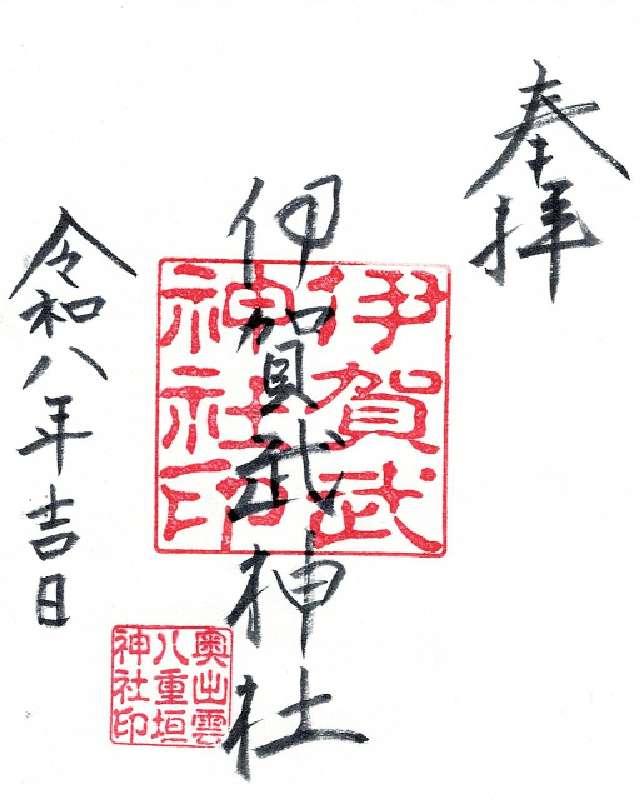 奉拝
伊賀武神社
伊賀武
神社印
奥出雲
八重垣
神社印
令和八年吉日